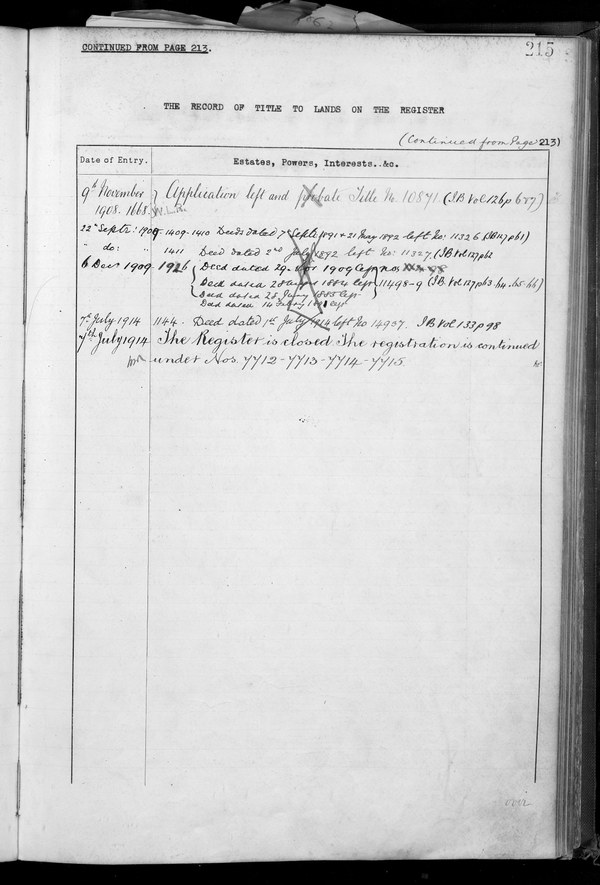 CONTINUED FROM PAGE 213.
215
THE RECORD OF TITLE TO LANDS ON THE REGISTER
(Continued from Page 213)
Date of Entry.
Estates, Powers, Interests..&c.
9th November Application left and probate Title No. 10871. (SB Vol 126 p 687)
1908. 1668.
22d Septr: 1909 - 1409-1410 Deeds dated 7 Septr 1891 & 21 May 1892 left No: 11326 (SB 127 p 61)
" do: " 1411 Deed dated 2nd July 1892 left No: 11327. (SB Vol 127 p 62
6 Decr 1909 1926 Deed dated 29 1909 left nos
Deed dated 28 1884 left 11498-9 (SB Vol 127 p 63. 64. 65. 66)
Deed dated 28 1885 left
Deed dated 14 left
7th July 1914 1144. Deed dated 1st July 1914 left No 14937. SB Vol 133 p 98
7th July 1914 The Register is closed The registration is continued
under Nos. 7712-7713-7714-7715.